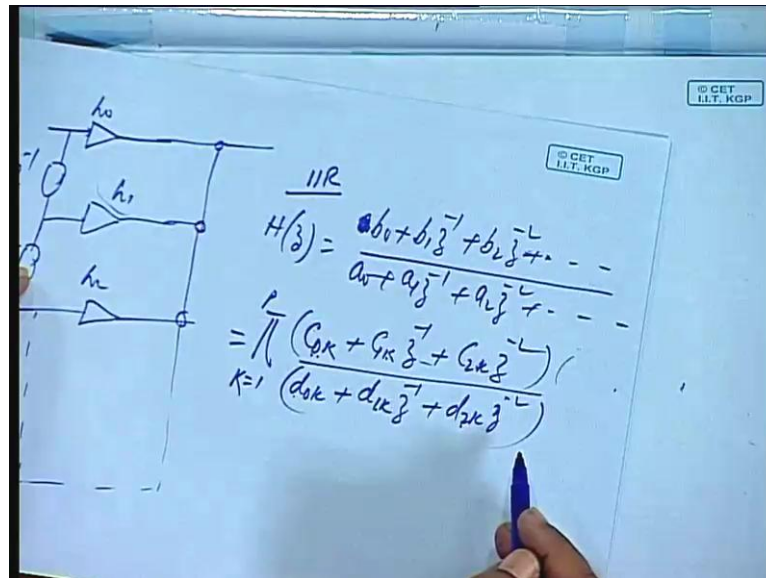 © CET
I.I.T. KGP
© CET
I.I.T. KGP
h₀
z⁻¹
h₁
h₂
IIR
H(z) = b₀ + b₁z⁻¹ + b₂z⁻² + - - -
a₀ + a₁z⁻¹ + a₂z⁻² + - - -
= ∏ (C₀ₖ + C₁ₖ z⁻¹ + C₂ₖ z⁻²) (
P
K=1 (d₀ₖ + d₁ₖ z⁻¹ + d₂ₖ z⁻²)